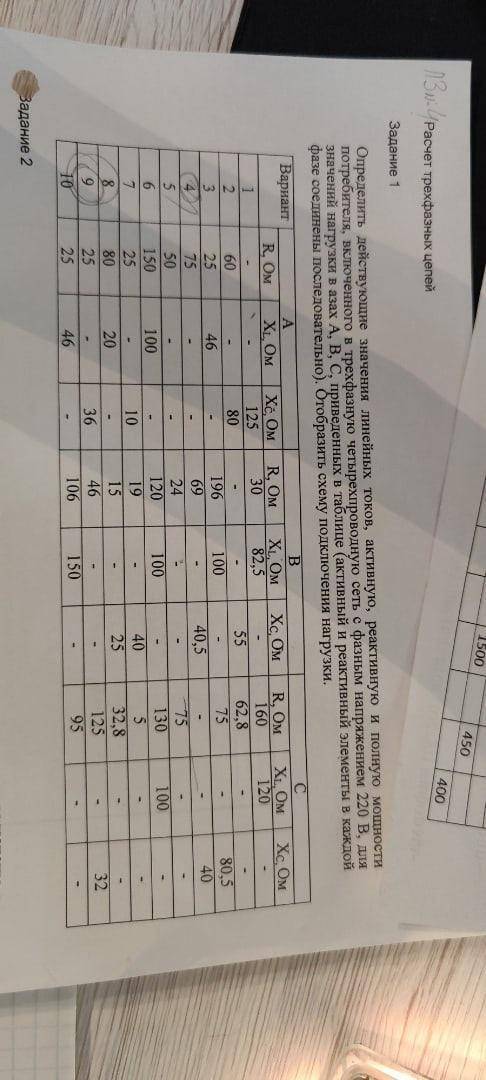 1500
450
400
ПЗ №4 Расчет трехфазных цепей
Задание 1
Определить действующие значения линейных токов, активную, реактивную и полную мощности
потребителя, включенного в трехфазную четырехпроводную сеть с фазным напряжением 220 В, для
значений нагрузки в азах А, В, С, приведенных в таблице (активный и реактивный элементы в каждой
фазе соединены последовательно). Отобразить схему подключения нагрузки.
Вариант A B C
R, Ом XL, Ом XC, Ом R, Ом XL, Ом XC, Ом R, Ом XL, Ом XC, Ом
1 - - 125 30 82,5 - 160 120 -
2 60 - 80 - - 55 62,8 - -
3 25 46 - 196 100 - 75 - 80,5
4 75 - - 69 - 40,5 - - 40
5 50 - - 24 - - 75 - -
6 150 100 - 120 100 - 130 100 -
7 25 - 10 19 - 40 5 - -
8 80 20 - 15 - 25 32,8 - -
9 25 - 36 46 - - 125 - 32
10 25 46 - 106 150 - 95 - -
Задание 2